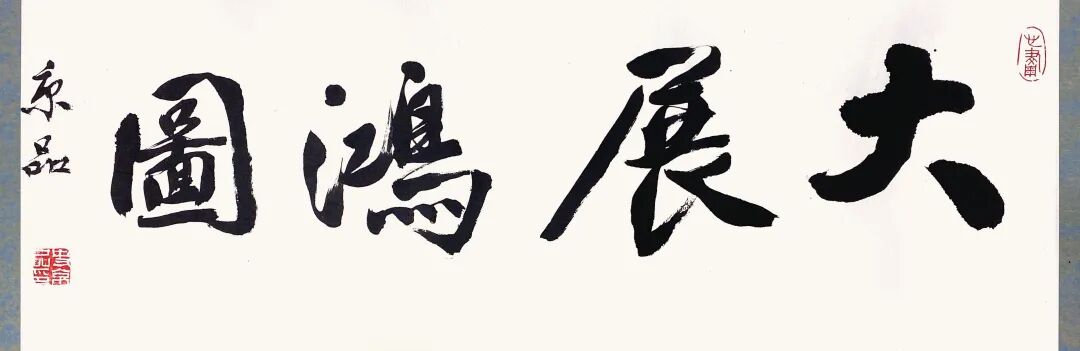 大展鴻圖
京品